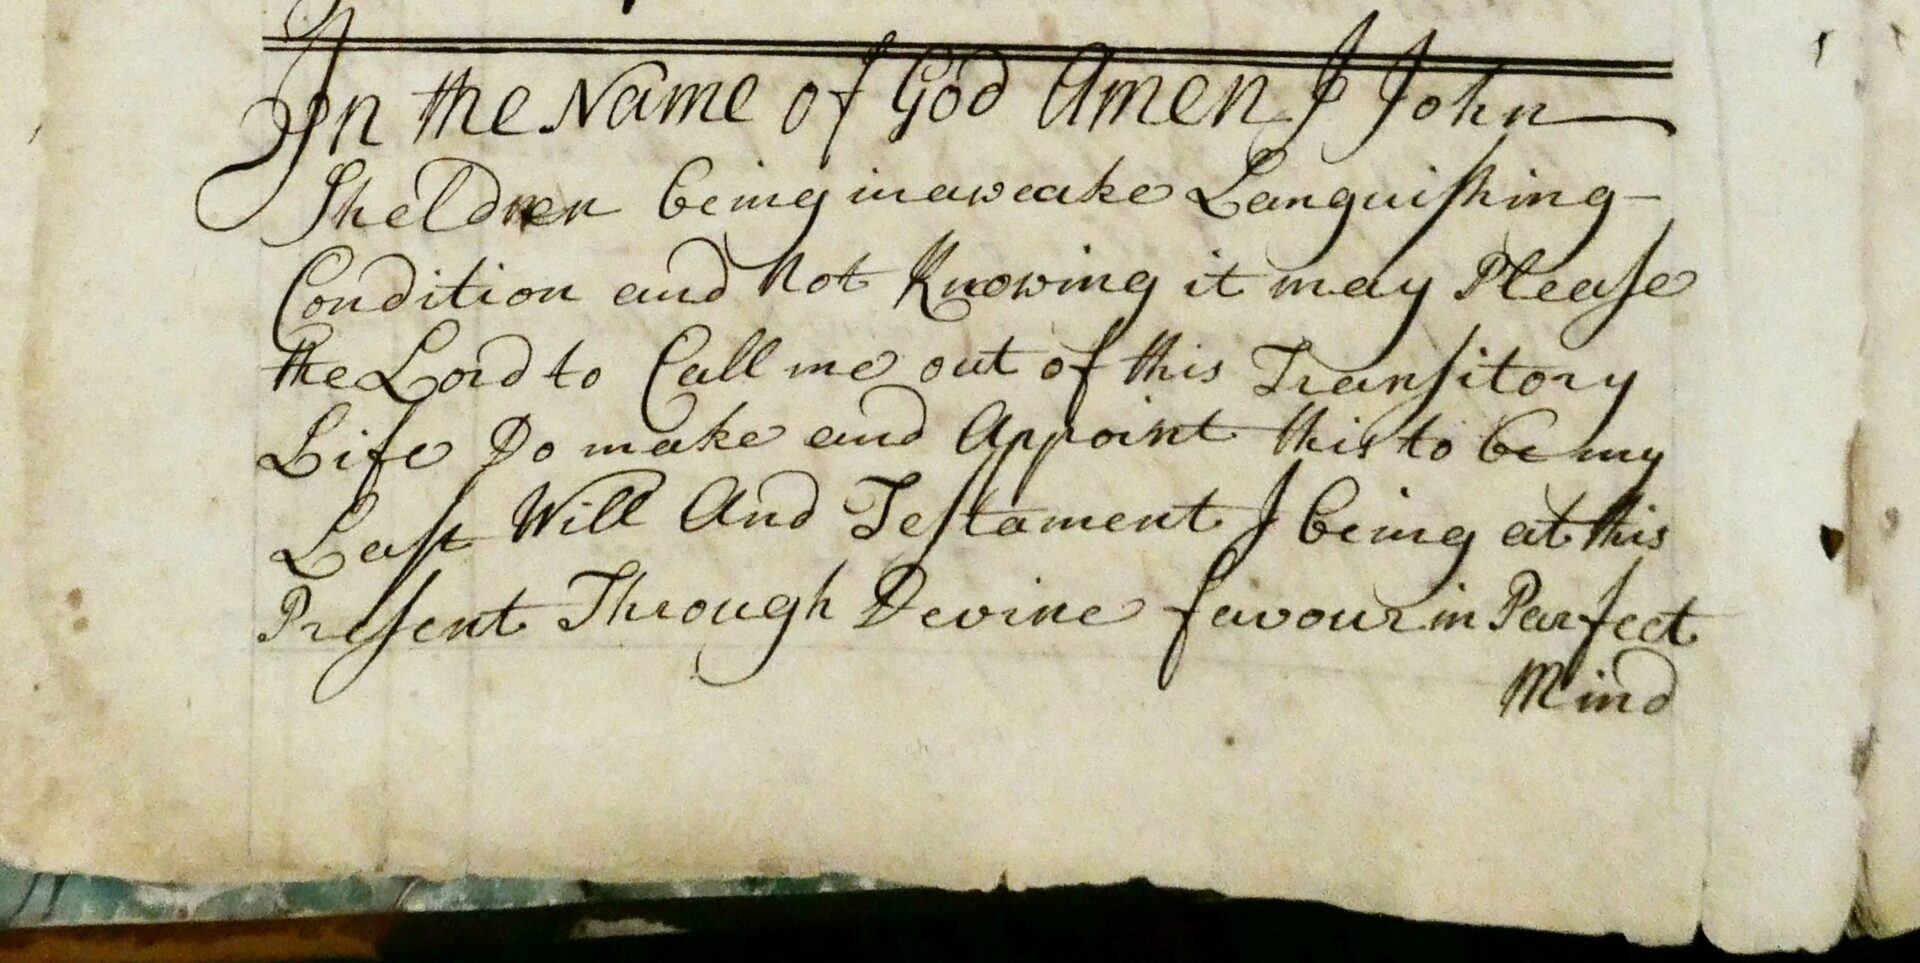 In the Name of God Amen I John
Sheldren being in a weake Languishing
Condition and Not Knowing it may Please
the Lord to Call me out of this Transitory
Life Do make and Appoint this to be my
Last Will And Testament I being at this
Present Through Devine favour in Parfect
Mind